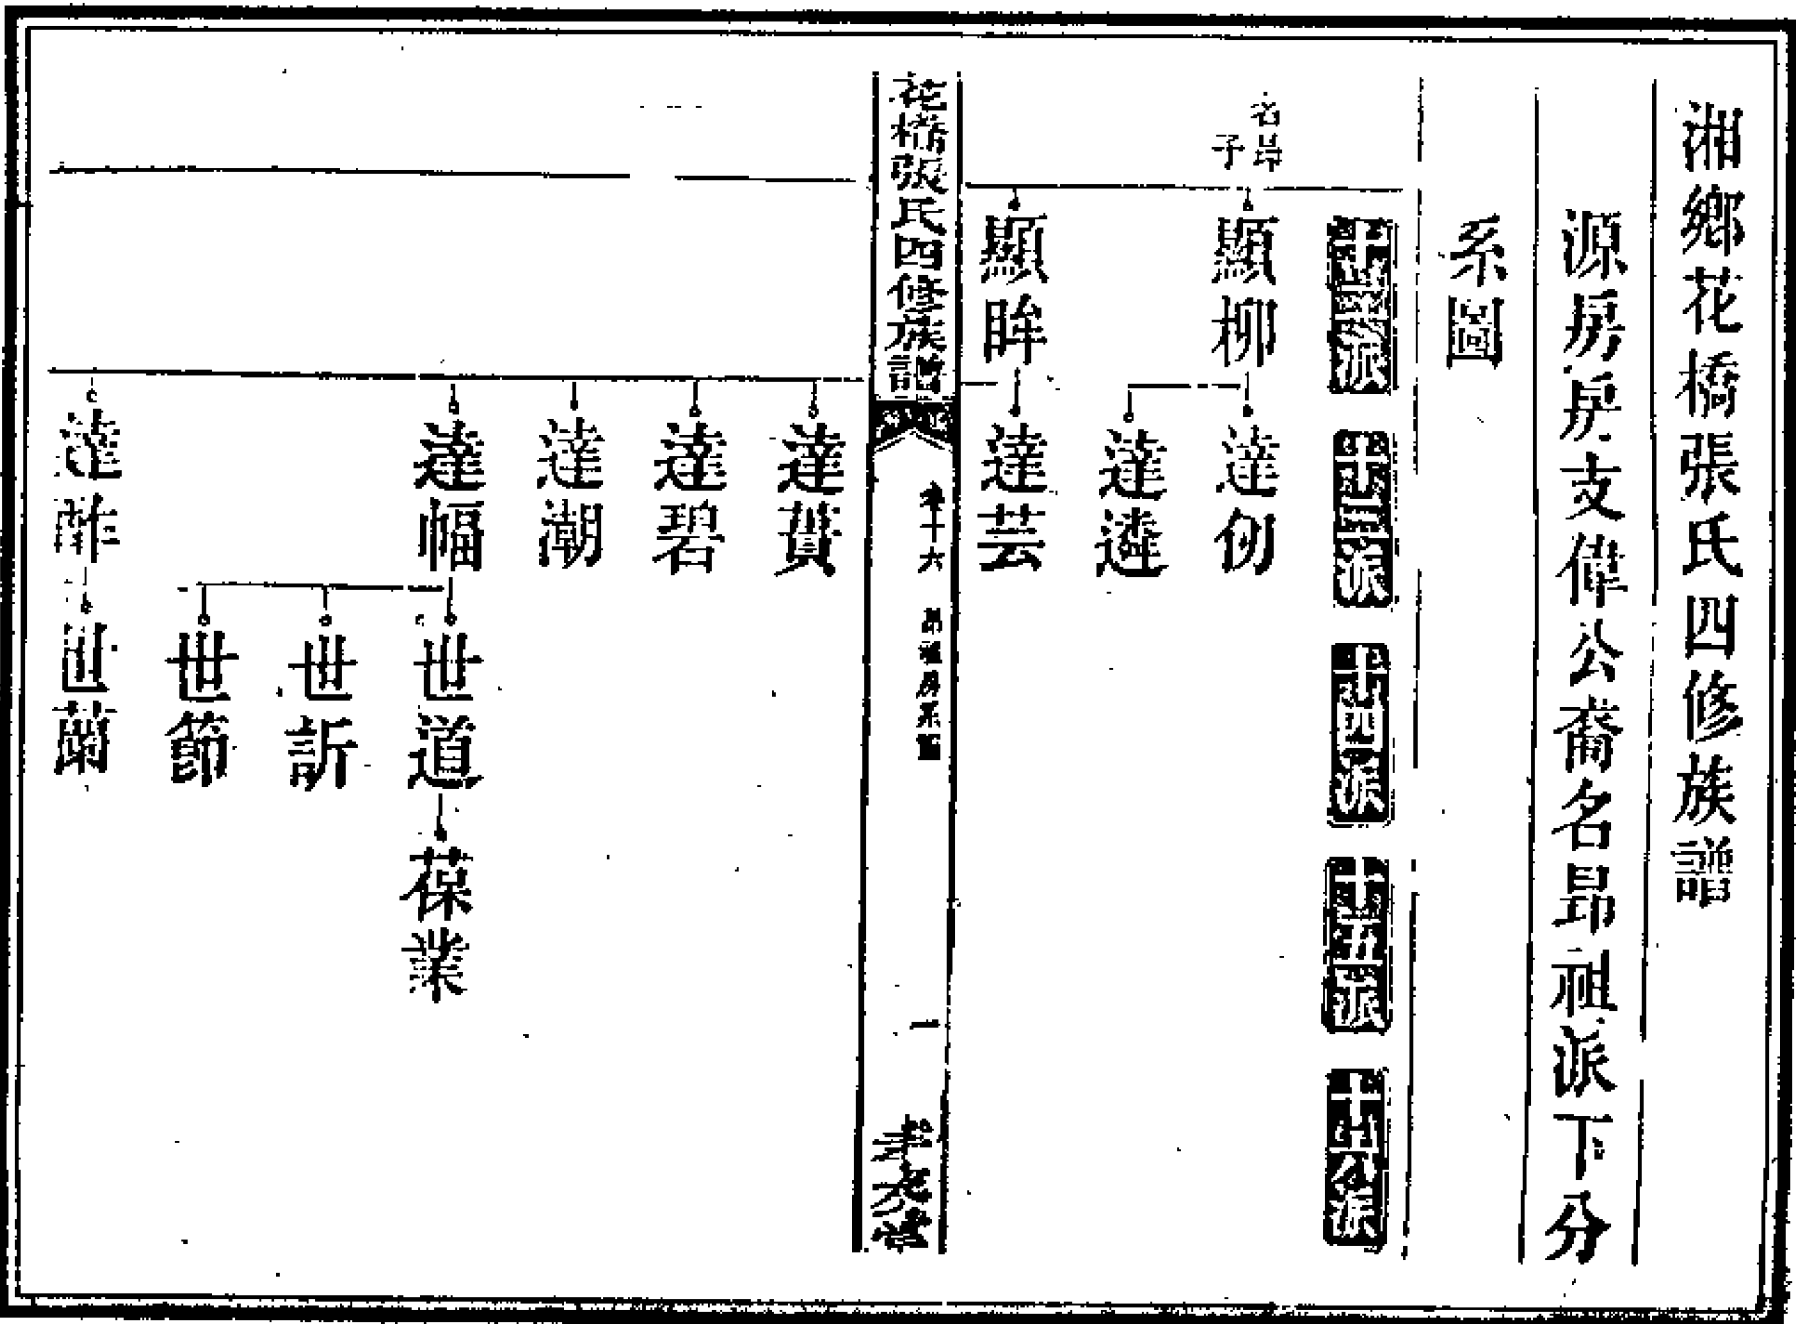 湘鄉花橋張氏四修族譜
源房房支偉公裔名昂祖派下分
系圖
十二派
十三派
十四派
十五派
十六派
名昂
子
顯柳
達仞
達遴
顯眸
達芸
花橋張氏四修族譜
卷十六
房系圖
一
孝友堂
達蕡
達碧
達潮
達幅
世道
葆業
世訢
世節
達酢
世蘭